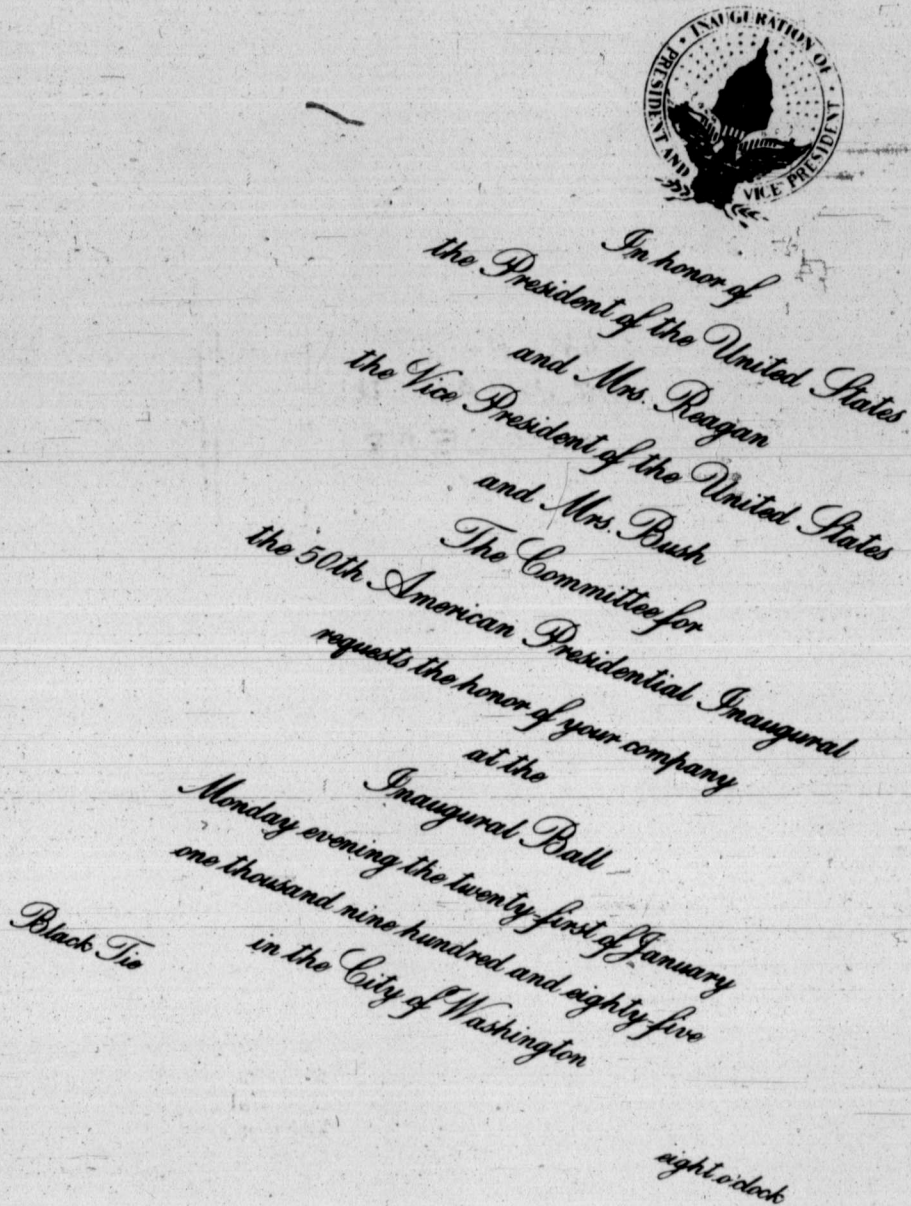 INAUGURATION OF PRESIDENT AND VICE PRESIDENT
In honor of
the President of the United States
and Mrs. Reagan
the Vice President of the United States
and Mrs. Bush
The Committee for
the 50th American Presidential Inaugural
requests the honor of your company
at the
Inaugural Ball
Monday evening the twenty-first of January
one thousand nine hundred and eighty-five
in the City of Washington
Black Tie
eight o'clock